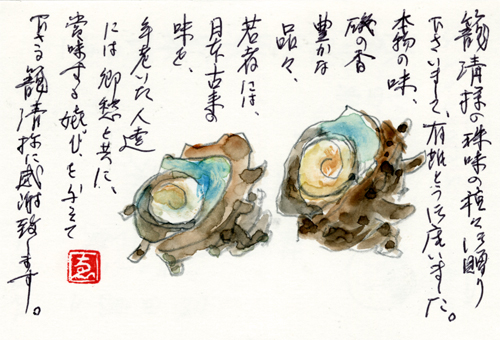 籠清様の珠味の種々御贈り
下さいまして、有難とうございました。
本物の味、
磯の香
豊かな
品々、
若者には、
日本古来の
味を、
年老いた人達
には郷愁と共に、
賞味する機会を与えて
下さる籠清様に感謝致します。
ゑ